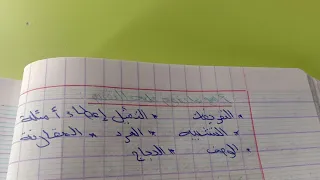 * التعريف * التمثيل إعطاء أمثلة
* التشبيه * السرد * المقارنة
* الوصف * الحجاج